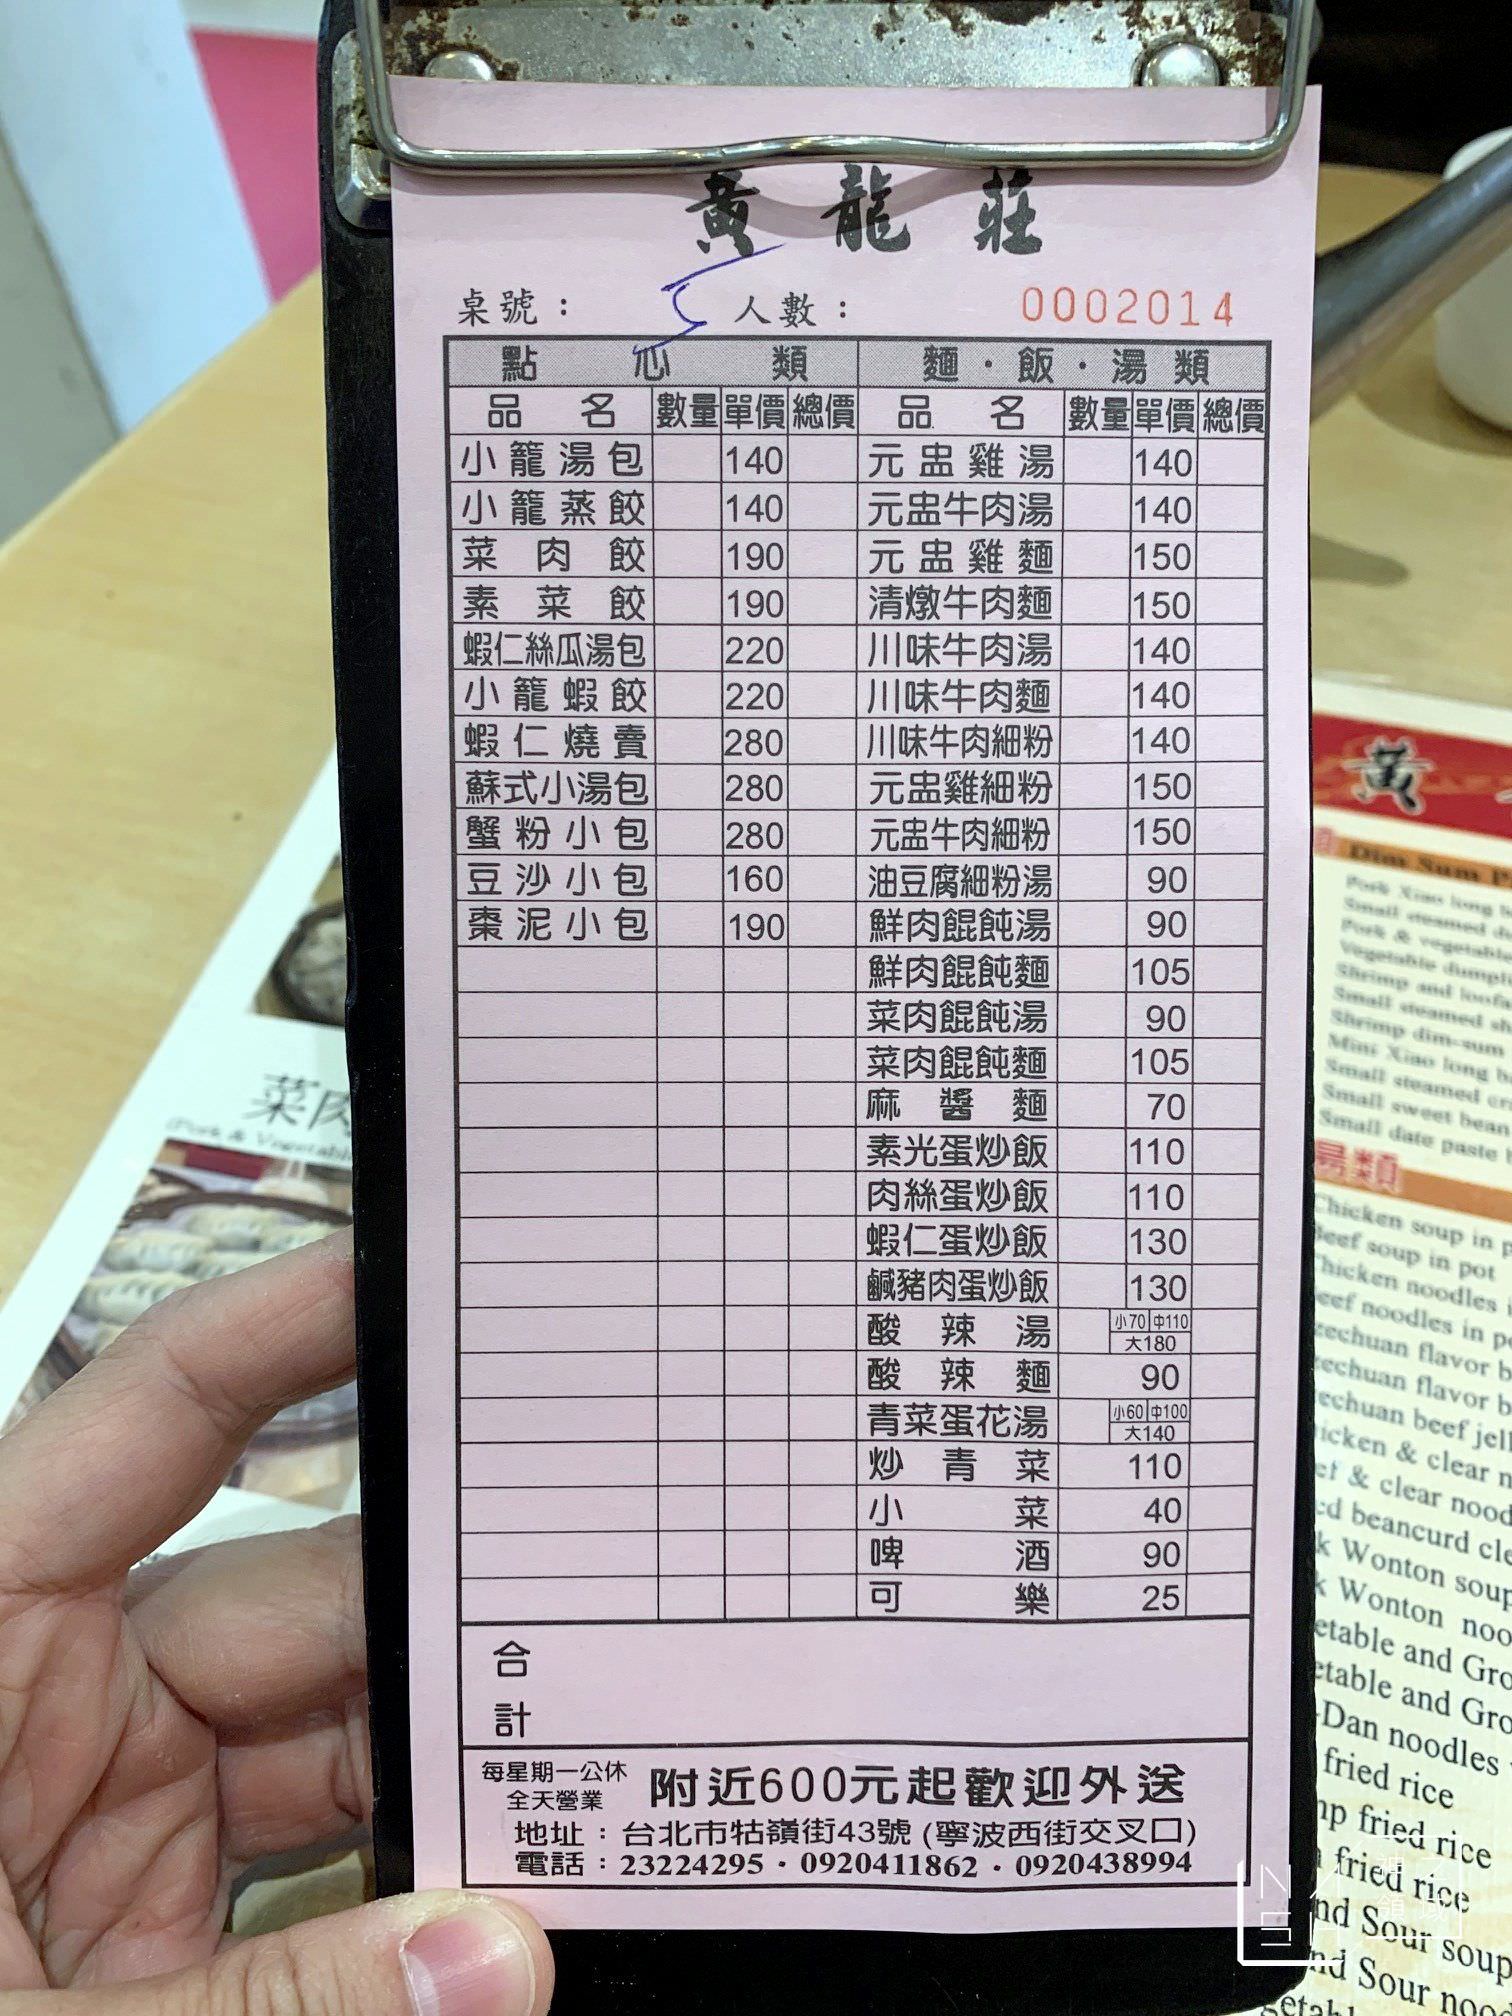 黃龍莊
桌號： 5 人數： 0002014
點心類 麵・飯・湯類
品名 數量 單價 總價 品名 數量 單價 總價
小籠湯包 140 元盅雞湯 140
小籠蒸餃 140 元盅牛肉湯 140
菜肉餃 190 元盅雞麵 150
素菜餃 190 清燉牛肉麵 150
蝦仁絲瓜湯包 220 川味牛肉湯 140
小籠蝦餃 220 川味牛肉麵 140
蝦仁燒賣 280 川味牛肉細粉 140
蘇式小湯包 280 元盅雞細粉 150
蟹粉小包 280 元盅牛肉細粉 150
豆沙小包 160 油豆腐細粉湯 90
棗泥小包 190 鮮肉餛飩湯 90
鮮肉餛飩麵 105
菜肉餛飩湯 90
菜肉餛飩麵 105
麻醬麵 70
素光蛋炒飯 110
肉絲蛋炒飯 110
蝦仁蛋炒飯 130
鹹豬肉蛋炒飯 130
酸辣湯 小70 中110 大180
酸辣麵 90
青菜蛋花湯 小60 中100 大140
炒青菜 110
小菜 40
啤酒 90
可樂 25
合計
每星期一公休
全天營業
附近600元起歡迎外送
地址：台北市牯嶺街43號 (寧波西街交叉口)
電話：23224295・0920411862・0920438994
菜肉
(Pork & Vegetabl
黃
Dim Sum P
Pork Xiao long b
Small steamed d
Pork & vegetable
Vegetable dumpli
Shrimp and loofa
Small steamed sh
Shrimp dim-sum
Mini Xiao long b
Small steamed cr
Small sweet bean
Small date paste b
湯類
Chicken soup in p
Beef soup in pot
Chicken noodles i
Beef noodles in po
zechuan flavor b
zechuan flavor b
zechuan beef jell
icken & clear n
ef & clear nood
ed beancurd cle
k Wonton soup
k Wonton noo
etable and Gro
etable and Gro
-Dan noodles
fried rice
mp fried rice
fried rice
nd Sour soup
nd Sour noo
getab
神之領域